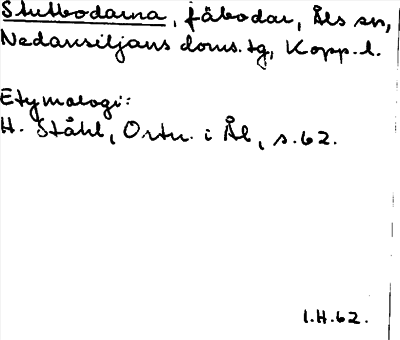 Stutbodarna, fäbodar, Åls sn,
Nedansiljans doms.tg, Kopp. l.
Etymologi:
H. Ståhl, Ortn. i Ål, s. 62.
I.H.62.